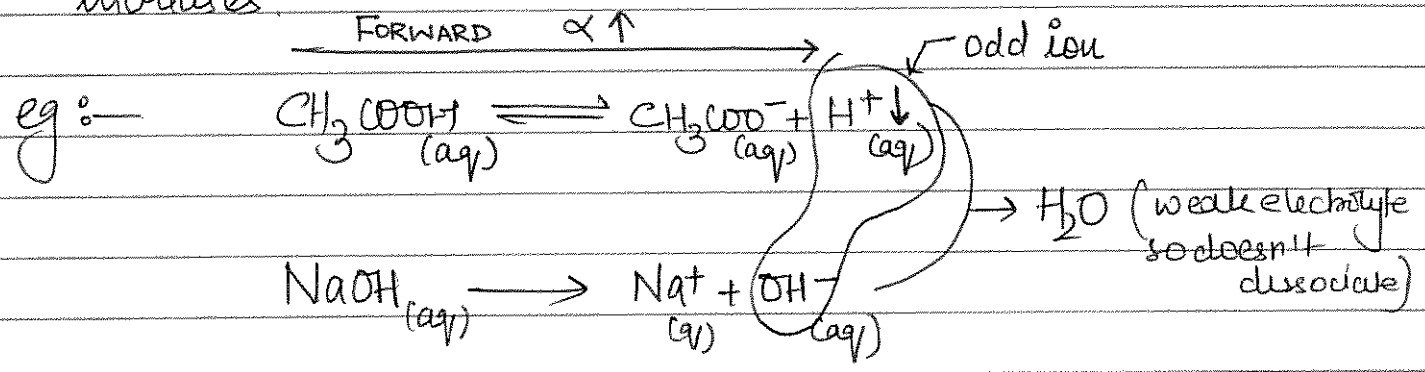 increases.
FORWARD α ↑
odd ion
eg :— CH₃COOH (aq) ⇌ CH₃COO⁻ (aq) + H⁺ ↓ (aq)
→ H₂O (weak electrolyte so doesn't dissociate)
NaOH (aq) → Na⁺ (q) + OH⁻ (aq)